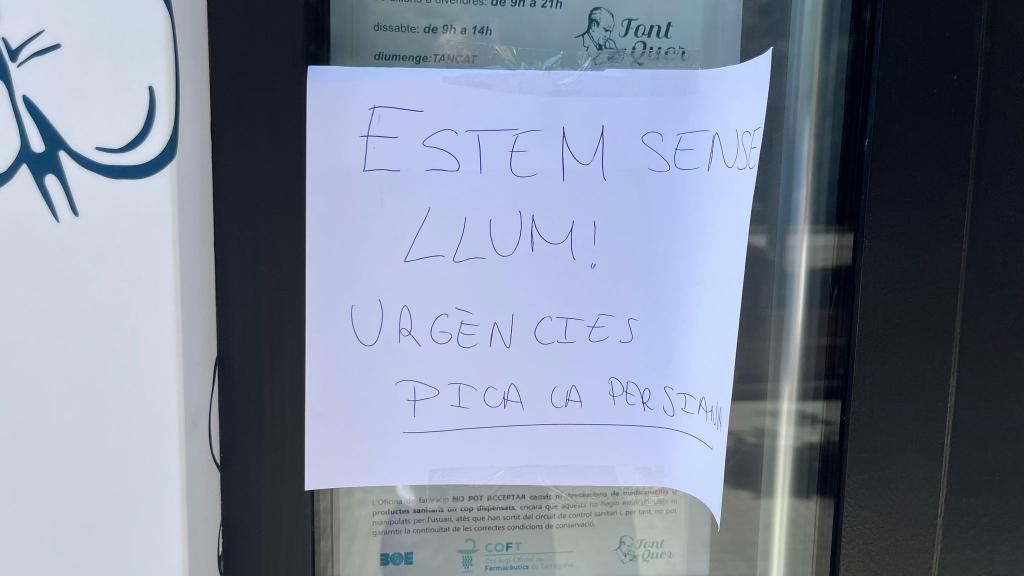 de 9h a 21h
dissabte: de 9h a 14h
diumenge:TANCAT
Font
Quer
ESTEM SENSE
LLUM!
URGÈNCIES
PICA LA PERSIANA
L'Oficina de farmàcia NO POT ACCEPTAR canvis ni devolucions de medicaments o
productes sanitaris un cop dispensats, encara que aquests no hagin estat ni
manipulats per l'usuari, atès que han sortit del circuit de control sanitari i, per tant, no pot
garantir la continuïtat de les correctes condicions de conservació.
BOE
COFT
Col·legi Oficial de
Farmacèutics de Tarragona
Font
Quer